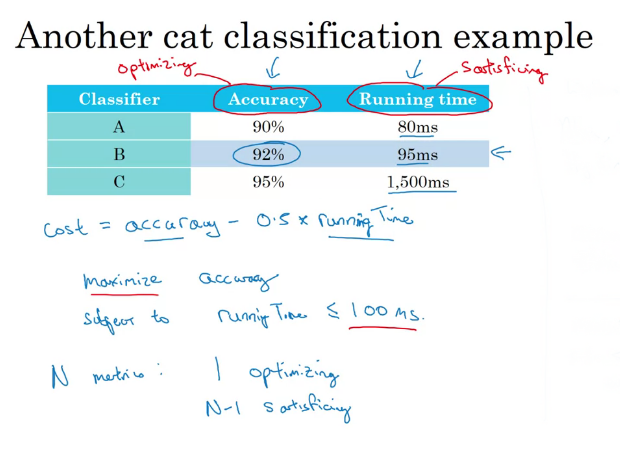 Another cat classification example
optimizing satisficing
Classifier Accuracy Running time
A 90% 80ms
B 92% 95ms
C 95% 1,500ms
cost = accuracy - 0.5 x runningTime
maximize accuracy
subject to runningTime ≤ 100 ms.
N metrics : 1 optimizing
N-1 satisficing